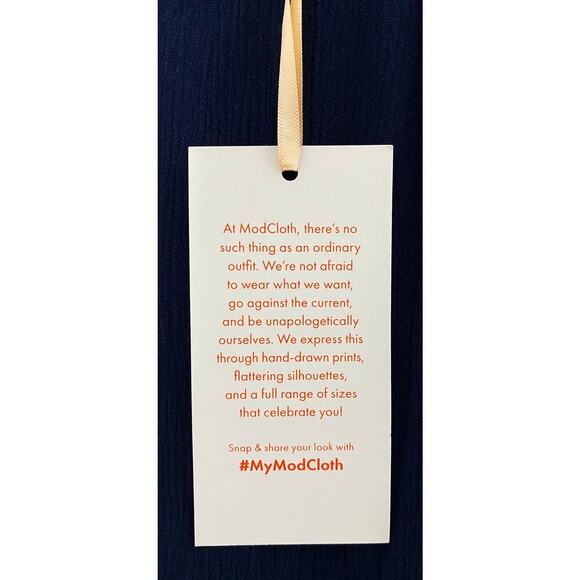 At ModCloth, there's no
such thing as an ordinary
outfit. We're not afraid
to wear what we want,
go against the current,
and be unapologetically
ourselves. We express this
through hand-drawn prints,
flattering silhouettes,
and a full range of sizes
that celebrate you!
Snap & share your look with
#MyModCloth